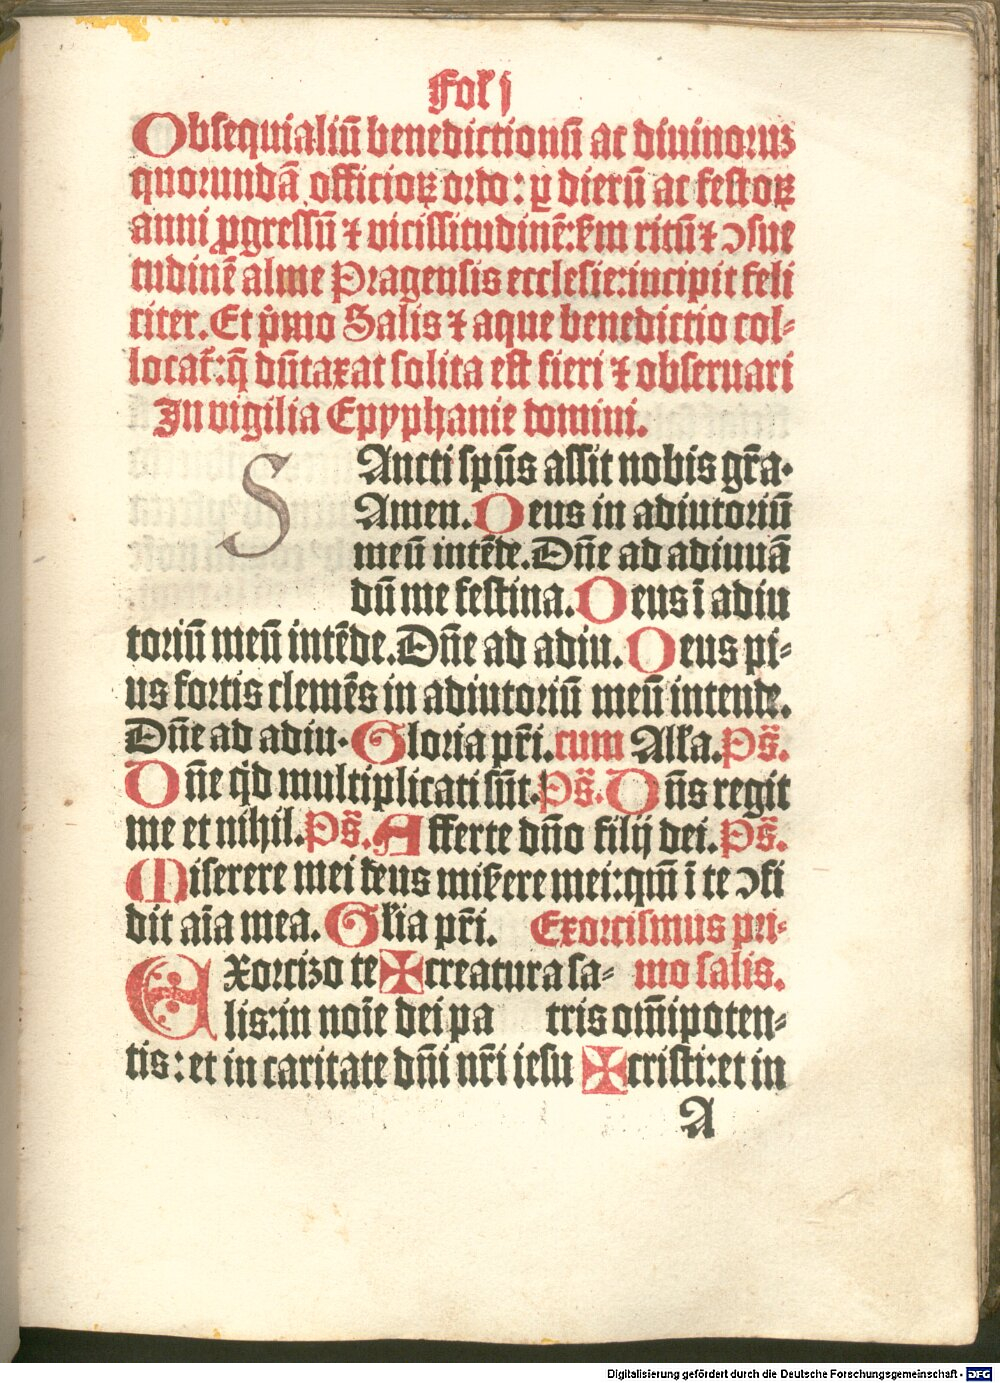 Fol̃ j
Obsequialiũ benedictionũ ac diuinoruz
quorundã officioꝝ ordo: ꝑ dierũ ac festoꝝ
anni ꝓgressũ ⁊ vicissitudinẽ: ẜm ritũ ⁊ ꝯsue
tudinẽ alme Pragensis ecclesie: incipit feli
citer. Et p̃mo Salis ⁊ aque benedictio col⸗
locat᷑: q̃ dũtaxat solita est fieri ⁊ obseruari
In vigilia Epyphanie domini.
S Ancti sp̃us assit nobis gr̃a.
Amen. Deus in adiutoriũ
meũ intẽde. Dñe ad adiuuã
dũ me festina. Deus ĩ adiu
toriũ meũ intẽde. Dñe ad adiu. Deus pi⸗
us fortis clemẽs in adiutoriũ meũ intende.
Dñe ad adiu. Gloria pr̃i. cum Alła. Ps̃.
Dñe qͥd multiplicati sũt. Ps̃. Dñs regit
me et nihil. Ps̃. Afferte dño filij dei. Ps̃.
Miserere mei deus miẜere mei: qm̃ ĩ te ꝯfi
dit aĩa mea. Gl̃ia pr̃i. Exorcismus pri⸗
Exorcizo te ✠ creatura sa⸗ mo salis.
lis: in noĩe dei pa tris om̃ipoten⸗
tis: et in caritate dñi nr̃i iesu ✠ cristi: et in
A
Digitalisierung gefördert durch die Deutsche Forschungsgemeinschaft - DFG